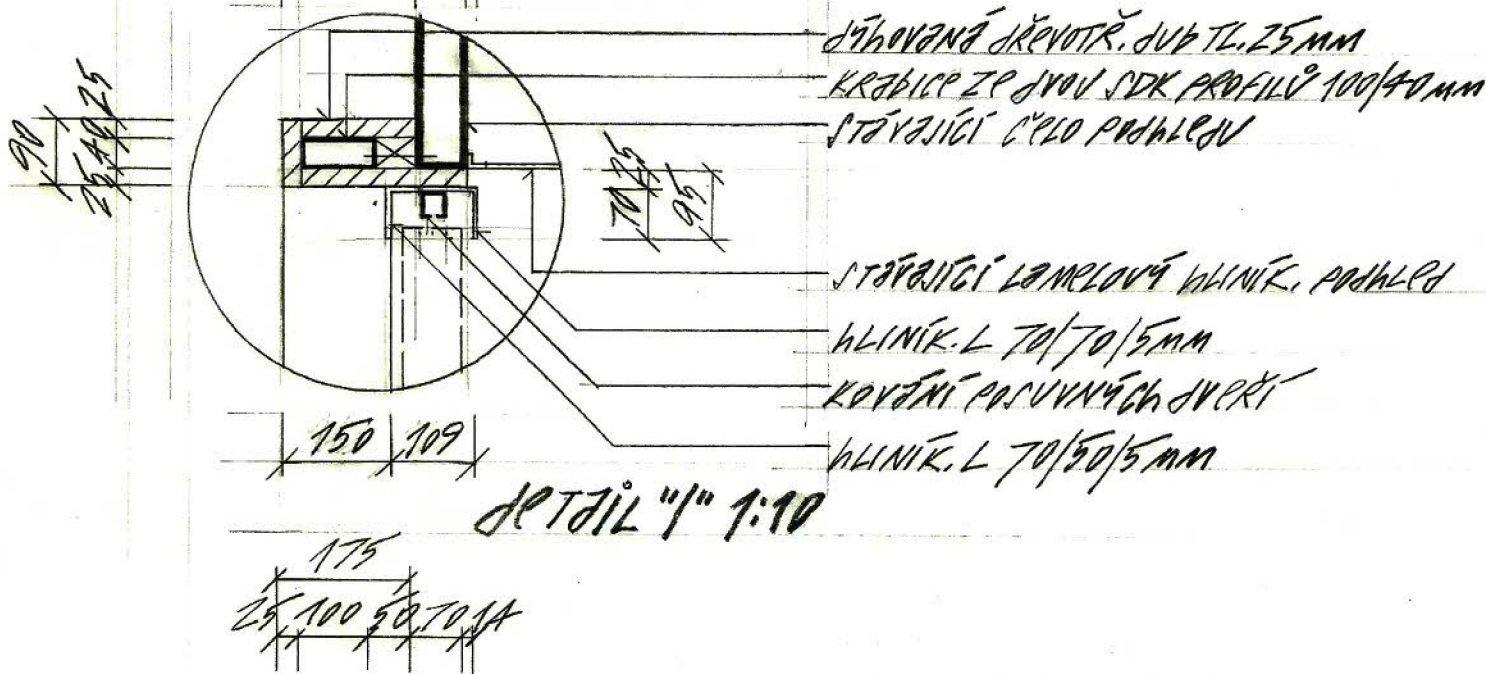 dýhovaná dřevotř. dub tl. 25 mm
krabice ze dvou SDK profilů 100/40 mm
stávající čelo podhledu
90
25 40 25
70 25
95
stávající lamelový hliník. podhled
hliník. L 70/70/5 mm
kování posuvných dveří
hliník. L 70/50/5 mm
150 109
detail "1" 1:10
175
25 100 50 70 14